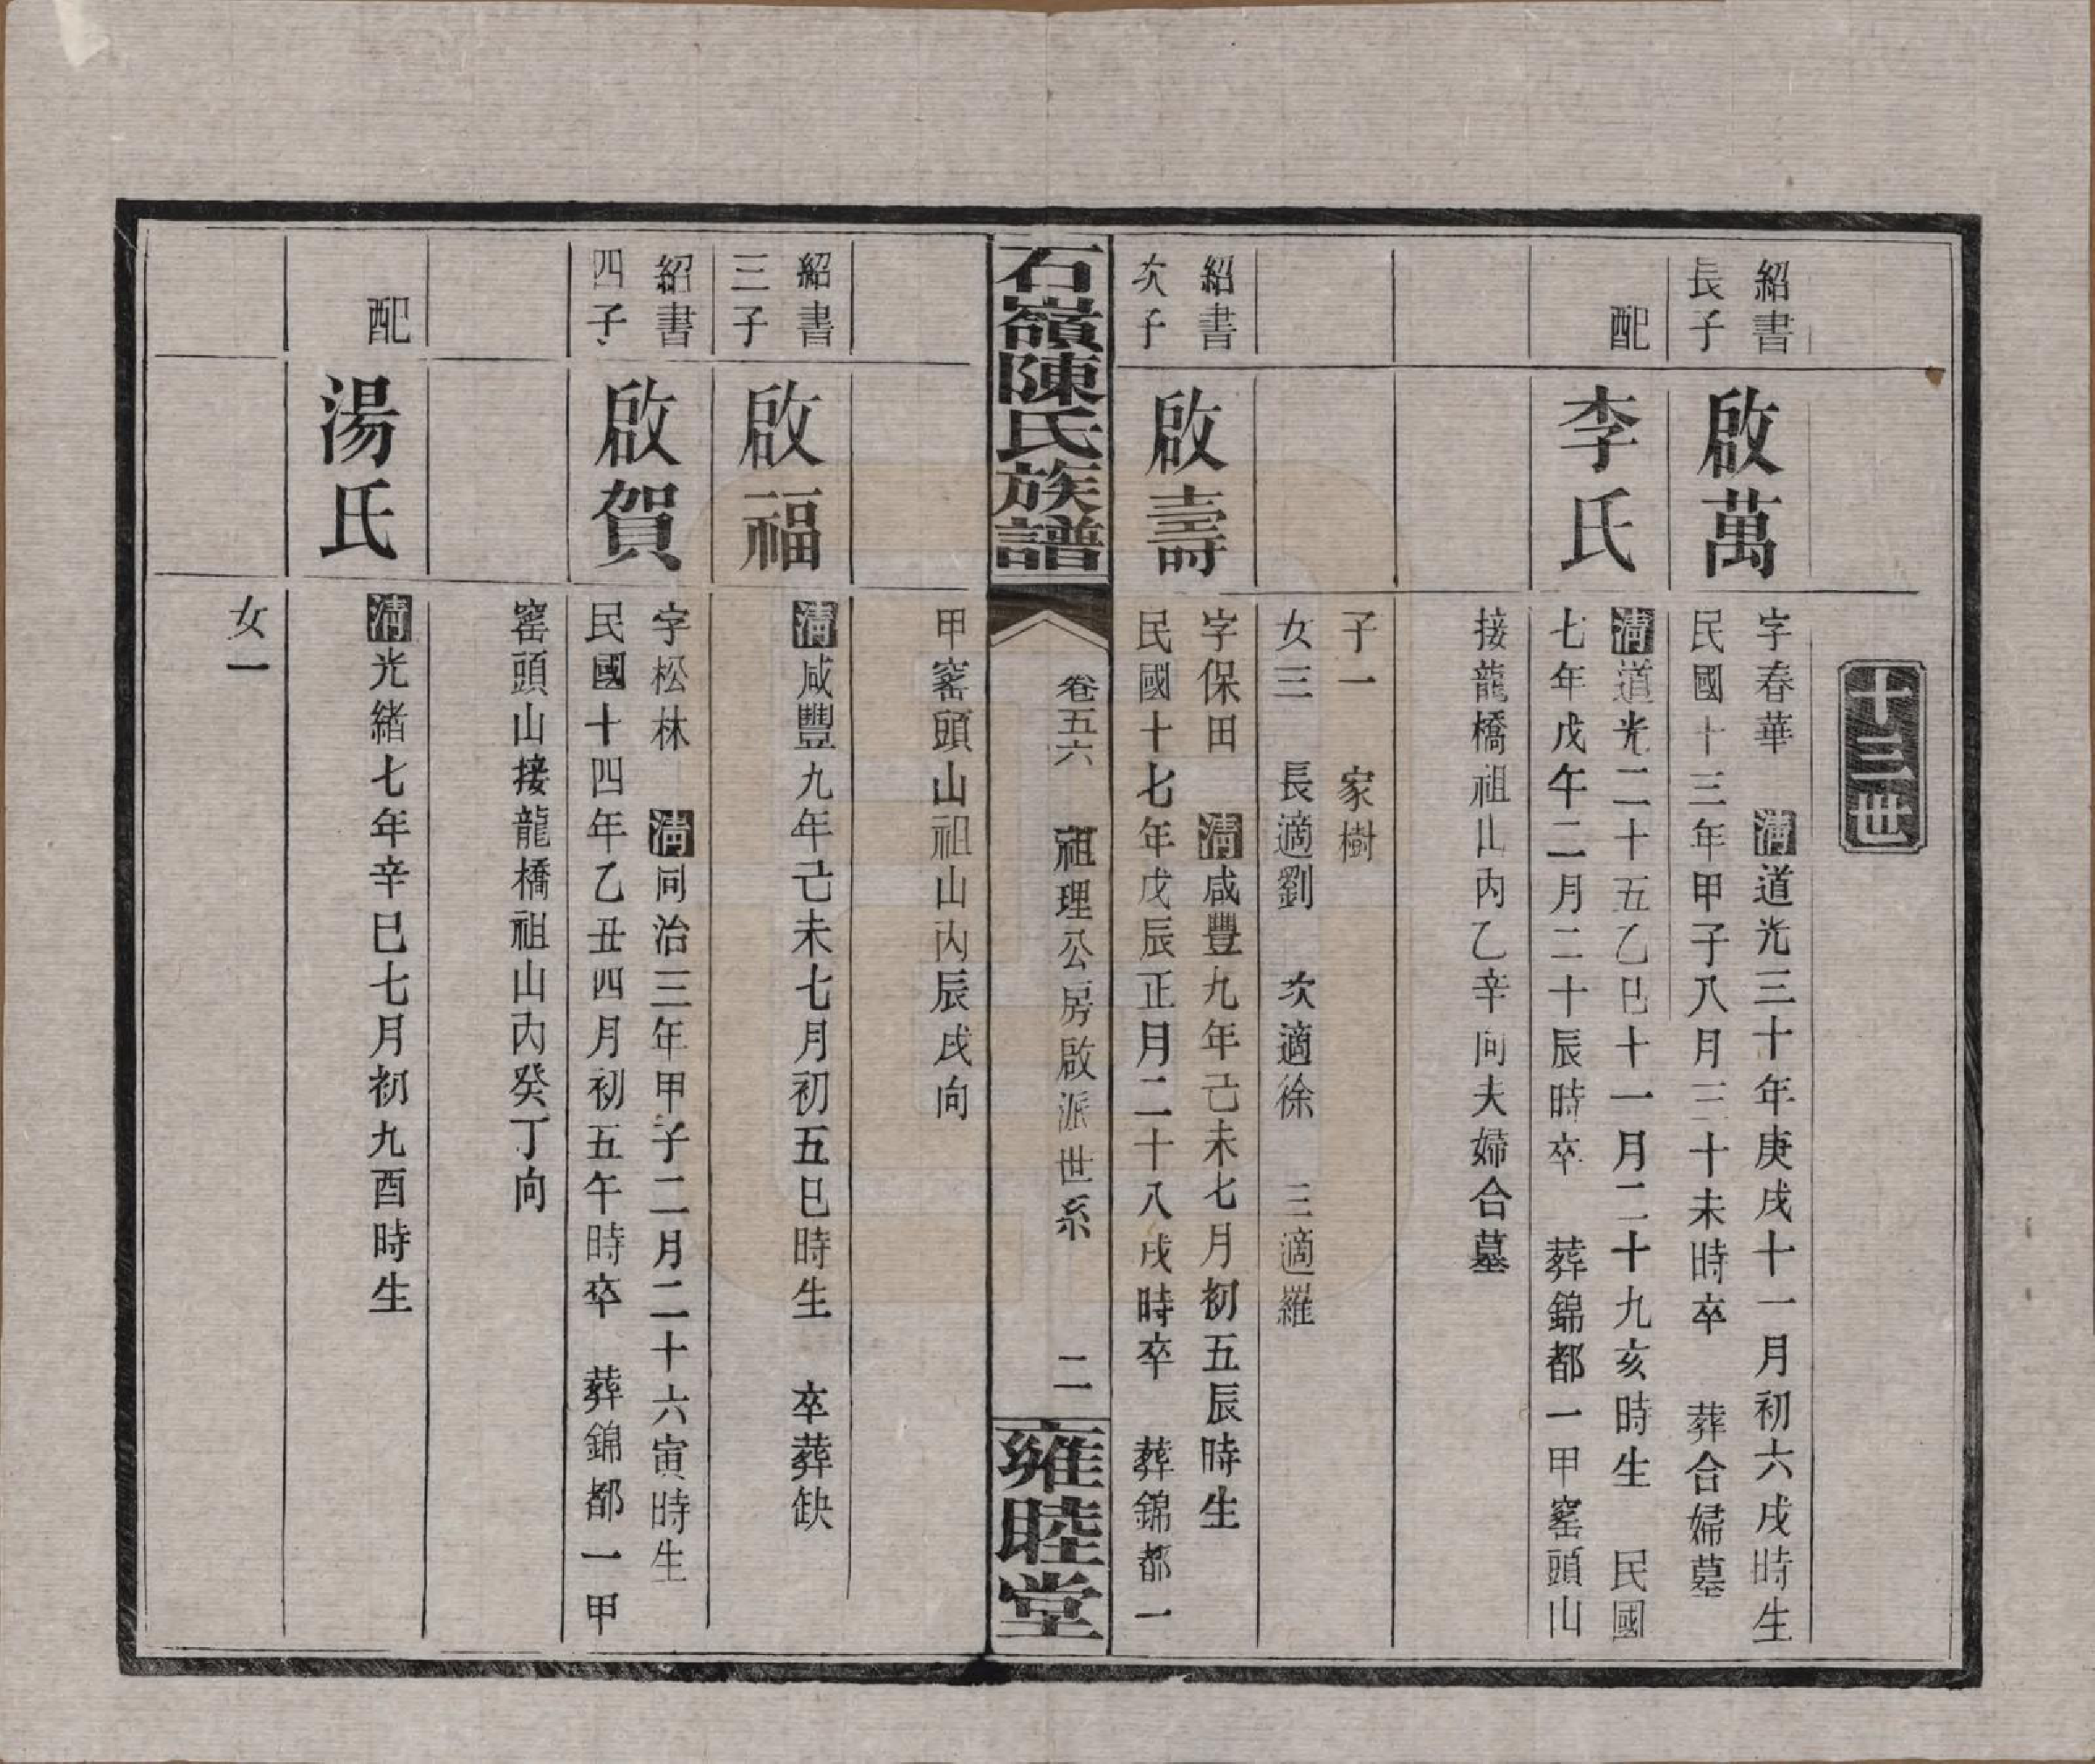 十三世
紹書
長子
啟萬
字春華 清道光三十年庚戌十一月初六戌時生
民國十三年甲子八月三十未時卒 葬合婦墓
配
李氏
清道光二十五乙巳十一月二十九亥時生 民國
七年戊午二月二十辰時卒 葬錦都一甲窰頭山
接龍橋祖山內乙辛向夫婦合墓
子一 家樹
女三 長適劉 次適徐 三適羅
紹書
次子
啟壽
字保田 清咸豐九年己未七月初五辰時生
民國十七年戊辰正月二十八戌時卒 葬錦都一
石嶺陳氏族譜
卷五六 祖理公房啟派世系 二
雍睦堂
甲窰頭山祖山內辰戌向
紹書
三子
啟福
清咸豐九年己未七月初五巳時生 卒葬缺
紹書
四子
啟賀
字松林 清同治三年甲子二月二十六寅時生
民國十四年乙丑四月初五午時卒 葬錦都一甲
窰頭山接龍橋祖山內癸丁向
配
湯氏
清光緒七年辛巳七月初九酉時生
女一